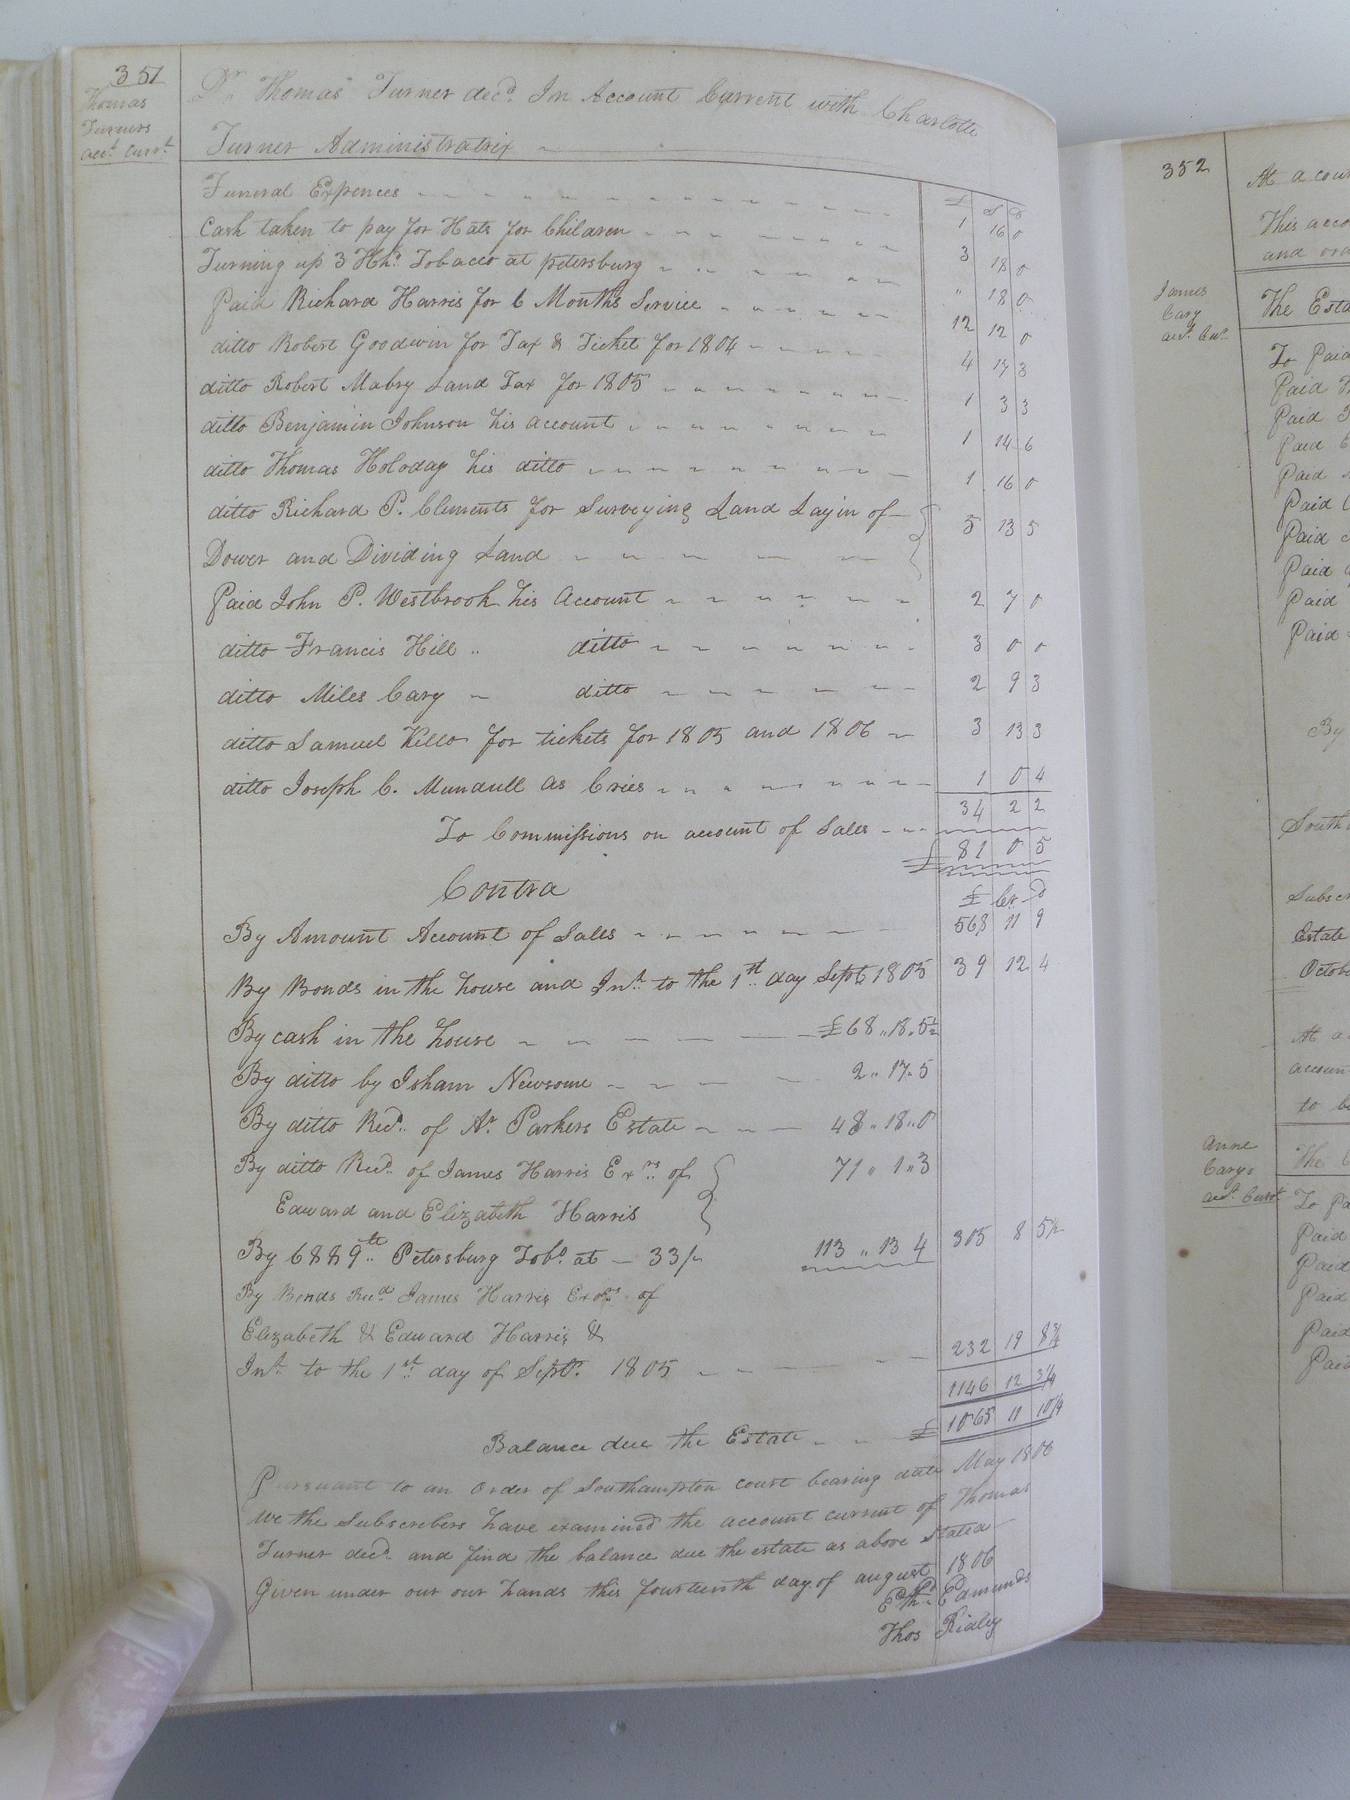 351
Thomas
Turners
acct. Curr.t
Dr. Thomas Turner decd. In Account Current with Charlotte
Turner Administratrix
£ S d
Funeral Expences 1 16 0
Cash taken to pay for Hats for Children 3 18 0
Turning up 3 Hhs. Tobacco at petersburg " 18 0
Paid Richard Harris for 6 Months Service 12 12 0
ditto Robert Goodwin for Tax & Ticket for 1804 4 17 3
ditto Robert Mabry Land Tax for 1805 1 3 3
ditto Benjamin Johnson his account 1 14 6
ditto Thomas Holoday his ditto 1 16 0
ditto Richard P. Clements for Surveying Land Layin of 5 13 5
Dower and Dividing Land
Paid John P. Westbrook his Account 2 7 0
ditto Francis Hill " ditto 3 0 0
ditto Miles Cary ditto 2 9 3
ditto Samuel Kello for tickets for 1805 and 1806 3 13 3
ditto Joseph C. as Cries 1 0 4
34 2 2
To Commissions on account of Sales
£ 81 0 5
Contra £ Cr d
By Amount Account of Sales 568 11 9
By Bonds in the house and Int. to the 1st day Sept. 1805 39 12 4
By cash in the house £68 " 18 " 5½
By ditto by Isham Newsome 2 " 17 " 5
By ditto Recd. of Parkers Estate 48 " 18 " 0
By ditto Recd. of James Harris Exrs. of 71 " 1 " 3
Edward and Elizabeth Harris
By 6889 lb Petersburg Tobo. at 33/ 113 " 13 4 305 8 5½
By Bonds Recd James Harris Exors. of
Elizabeth & Edward Harris &
Int. to the 1st day of Sept. 1805 232 19 8¾
1146 12 3¼
Balance due the Estate £ 1065 11 10¼
Pursuant to an Order of Southampton court bearing date May 1806
We the Subscribers have examined the account current of Thomas
Turner decd. and find the balance due the estate as above Stated
Given under our our hands this fourteenth day of august 1806
Edmunds
Thos Ridley
352
At a cou
This acco
and ord
James
Cary
act. Cur.
The Esta
To Paid
Paid
Paid
Paid
Paid
Paid
Paid
Paid
Paid
Paid
By
South
Subscr
Estate
Octobe
At a
accoun
to be
Anne
Carys
act. Curt.
The
To Pa
Paid
Paid
Paid
Paid
Paid